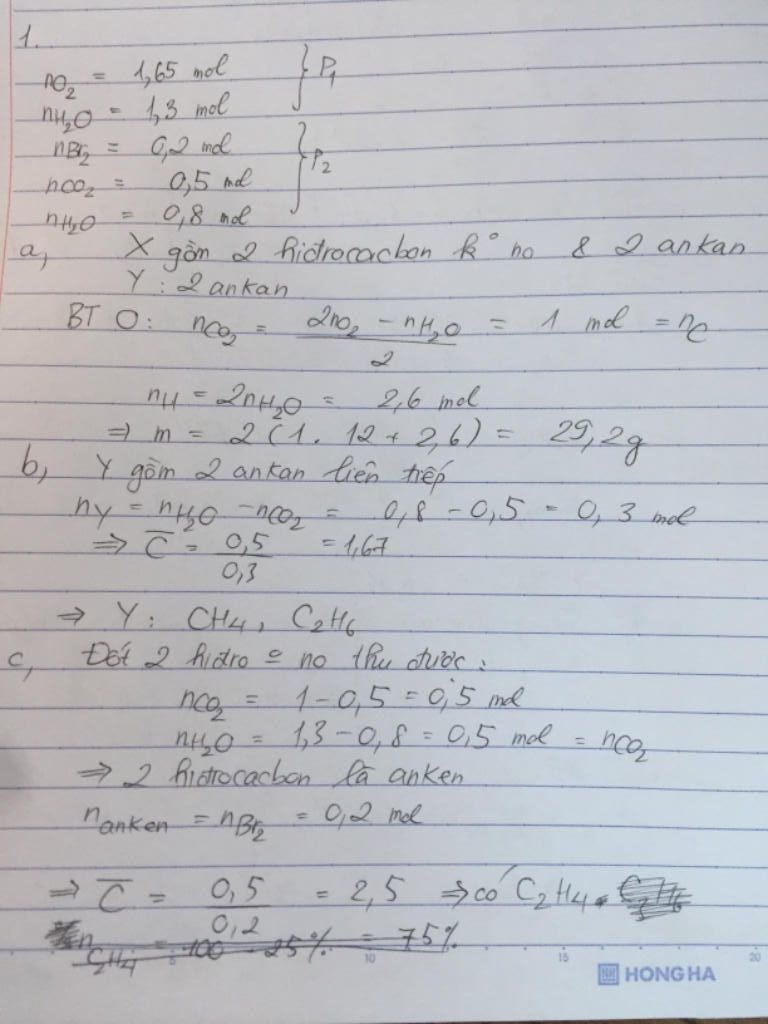 1.
nO2 = 1,65 mol } P1
nH2O = 1,3 mol
nBr2 = 0,2 mol } P2
nCO2 = 0,5 mol
nH2O = 0,8 mol
a, X gồm 2 hiđrocacbon k° no & 2 ankan
Y : 2 ankan
BT O: nCO2 = (2nO2 - nH2O)/2 = 1 mol = nC
nH = 2nH2O = 2,6 mol
⇒ m = 2(1. 12 + 2,6) = 29,2g
b, Y gồm 2 ankan liên tiếp
nY = nH2O - nCO2 = 0,8 - 0,5 = 0,3 mol
⇒ C̅ = 0,5/0,3 = 1,67
⇒ Y: CH4, C2H6
c, Đốt 2 hiđro = no thu được:
nCO2 = 1 - 0,5 = 0,5 mol
nH2O = 1,3 - 0,8 = 0,5 mol = nCO2
⇒ 2 hiđrocacbon là anken
n anken = nBr2 = 0,2 mol
⇒ C̅ = 0,5/0,2 = 2,5 ⇒ có C2H4.
nC2H4 = 100 - 25% = 75%
5 10 15 20
HONG HA